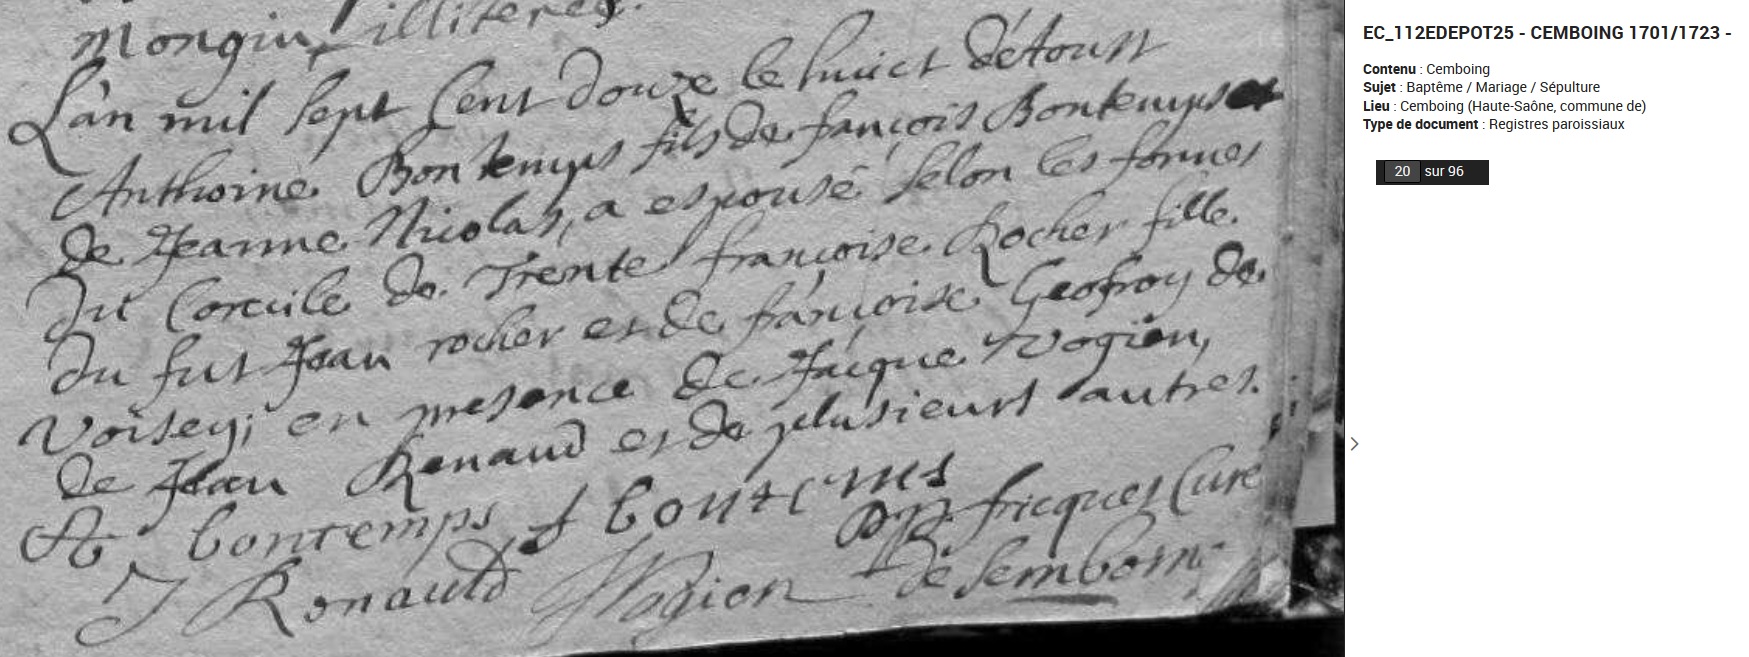 Mongin illiterés.
L'an mil sept Cent douze le huict d'étoust
Anthoine Bontemps fils de françois Bontemps et
de Jeanne Nicolas, a espousé selon les formes
du Concile de Trente françoise Rocher fille
du fut Jean rocher et de françoise Geofroy de
Voisey; en presence de Jacque Vogien,
de Jean Renaud et de plusieurs autres.
A bontemps f bontems
fricquet Curé
J Renauld Vogion de Semboin
EC_112EDEPOT25 - CEMBOING 1701/1723 -
Contenu : Cemboing
Sujet : Baptême / Mariage / Sépulture
Lieu : Cemboing (Haute-Saône, commune de)
Type de document : Registres paroissiaux
20 sur 96